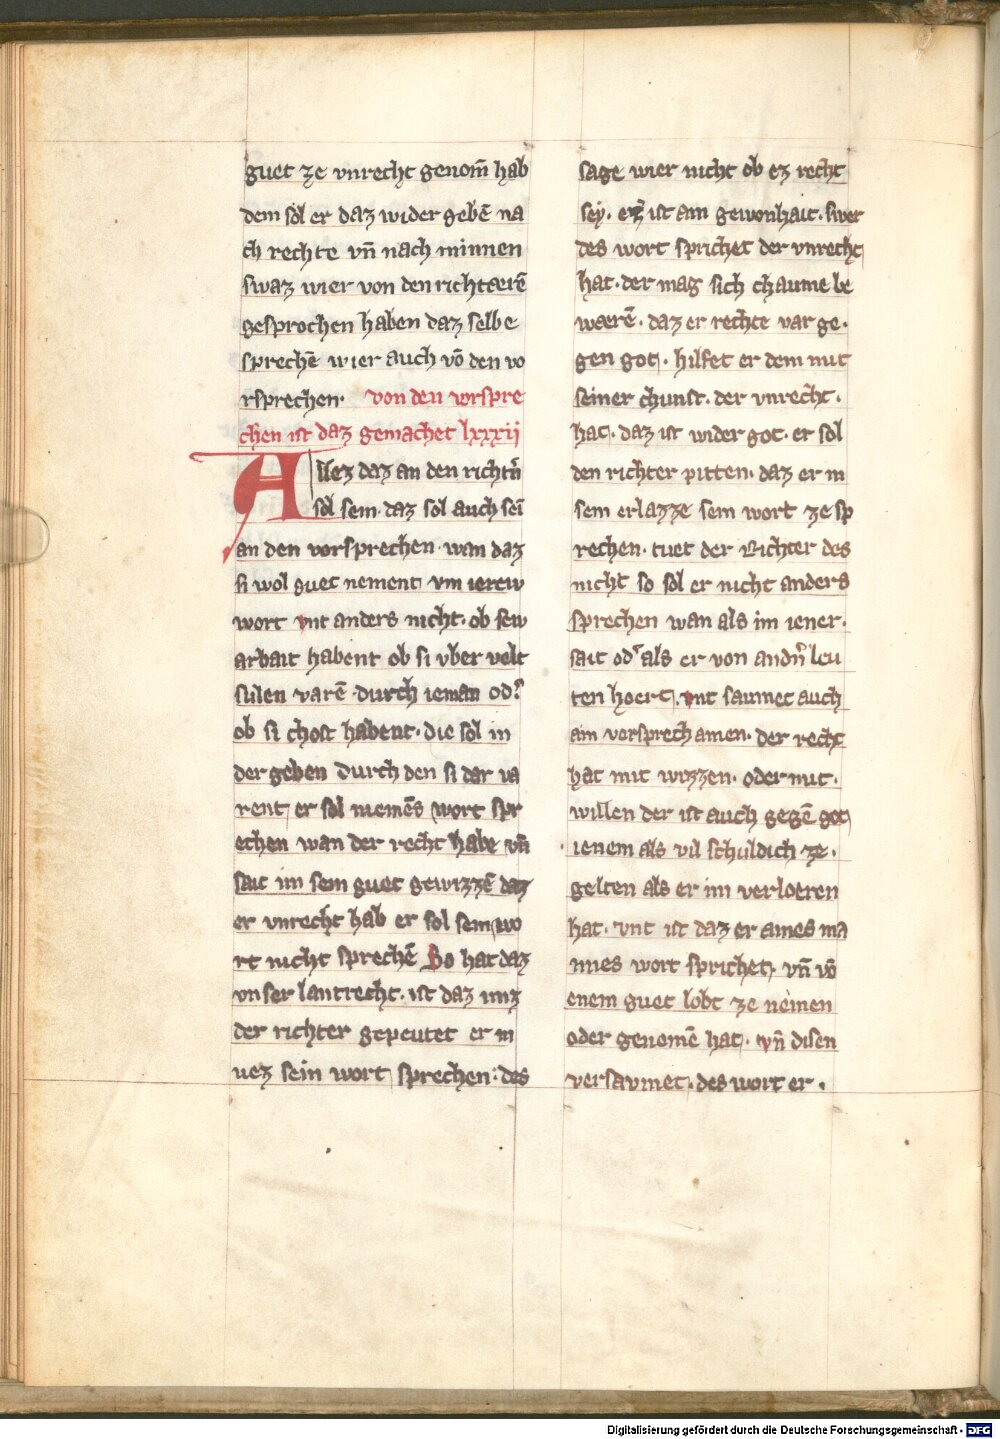 guet ze vnrecht genom̄ hab
dem sol er daz wider gebē na
ch rechte vn̄ nach minnen
swaz wier von den richtærē
gesprochen haben daz selbe
sprechē wier auch vō den vo
rsprechen. von den vorspre
chen ist daz gemachet lxxxii
Allez daz an den richtn̄
sol sein. daz sol auch sei
an den vorsprechen. wan daz
si wol guet nement vm ierew
wort vnt anders nicht. ob sew
arbait habent ob si vber velt
sulen varē durch ieman od
ob si chost habent. die sol in
der geben durch den si dar va
rent er sol niemēs wort spr
echen wan der recht habe vn̄
sait im sein guet gewizzē daz
er vnrecht hab er sol sein wo
rt nicht sprechē So hat daz
vnser lantrecht. ist daz imz
der richter gepeutet er m
uez sein wort sprechen. des
sage wier nicht ob ez recht
sey. ez ist ain gewonhait. swer
des wort sprichet der vnrecht
hat. der mag sich chaume be
wærē. daz er rechte var ge.
gen got. hilfet er dem mit
seiner chunst. der vnrecht.
hat. daz ist wider got. er sol
den richter pitten. daz er in
sein erlazze sein wort ze sp
rechen. tuet der Richter des
nicht so sol er nicht anders
sprechen wan als im iener.
sait od als er von andn̄ leu
ten hoert. vnt saumet auch
ain vorsprech ainen. der recht
hat mit wizzen. oder mit.
willen der ist auch gegē got
ienem als vil schuldich ze.
gelten als er im verloeren
hat. vnt ist daz er aines ma
nnes wort sprichet, vn̄ vō
enem guet lobt ze nemen
oder genomē hat. vn̄ disen
versaumet. des wort er.
Digitalisierung gefördert durch die Deutsche Forschungsgemeinschaft - DFG